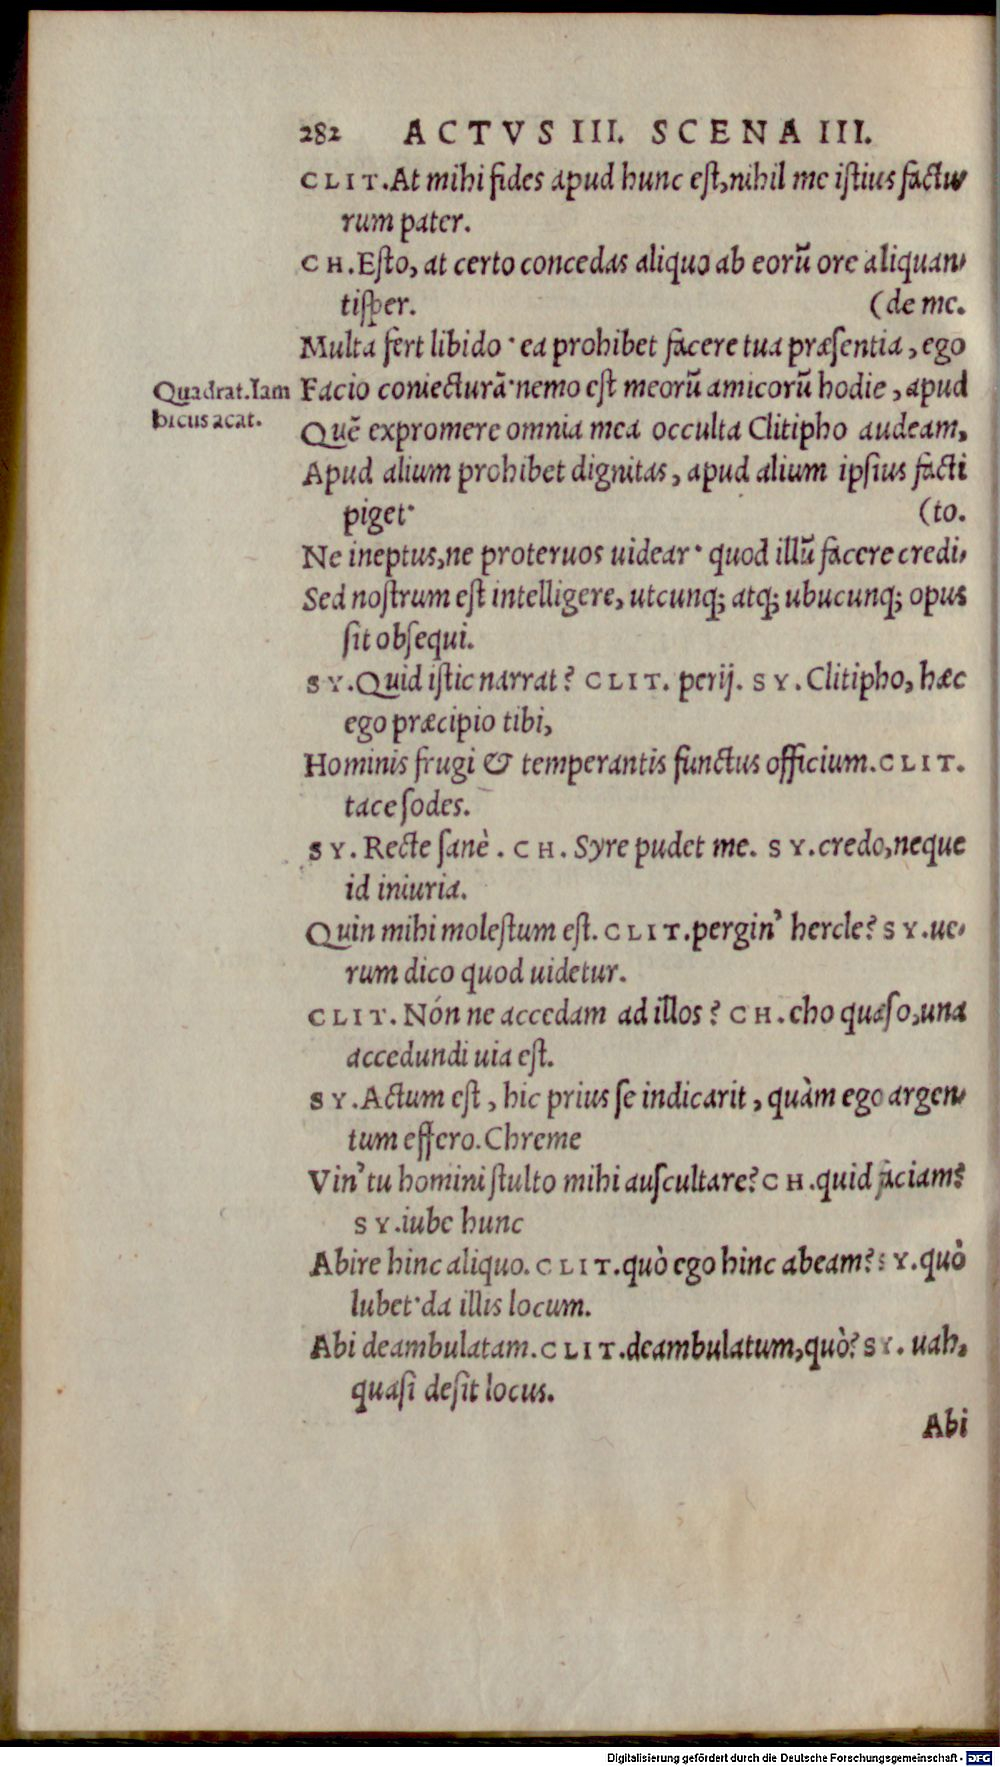 282 ACTVS III. SCENA III.
CLIT. At mihi fides apud hunc est, nihil me istius factu-
rum pater.
CH. Esto, at certo concedas aliquo ab eorū ore aliquan-
tisper. (de me.
Multa fert libido· ea prohibet facere tua præsentia, ego
Quadrat. Iam
bicus acat.
Facio coniecturā· nemo est meorū amicorū hodie, apud
Quē expromere omnia mea occulta Clitipho audeam,
Apud alium prohibet dignitas, apud alium ipsius facti
piget· (to.
Ne ineptus, ne proteruos uidear· quod illū facere credi-
Sed nostrum est intelligere, utcunq; atq; ubucunq; opus
sit obsequi.
SY. Quid istic narrat? CLIT. perij. SY. Clitipho, hæc
ego præcipio tibi,
Hominis frugi & temperantis functus officium. CLIT.
tace sodes.
SY. Recte sanè. CH. Syre pudet me. SY. credo, neque
id iniuria.
Quin mihi molestum est. CLIT. pergin' hercle? SY. ue-
rum dico quod uidetur.
CLIT. Nónne accedam ad illos? CH. eho quæso, una
accedundi uia est.
SY. Actum est, hic prius se indicarit, quàm ego argen-
tum effero. Chreme
Vin' tu homini stulto mihi auscultare? CH. quid faciam?
SY. iube hunc
Abire hinc aliquo. CLIT. quò ego hinc abeam? SY. quò
lubet· da illis locum.
Abi deambulatam. CLIT. deambulatum, quò? SY. uah,
quasi desit locus.
Abi
Digitalisierung gefördert durch die Deutsche Forschungsgemeinschaft - DFG